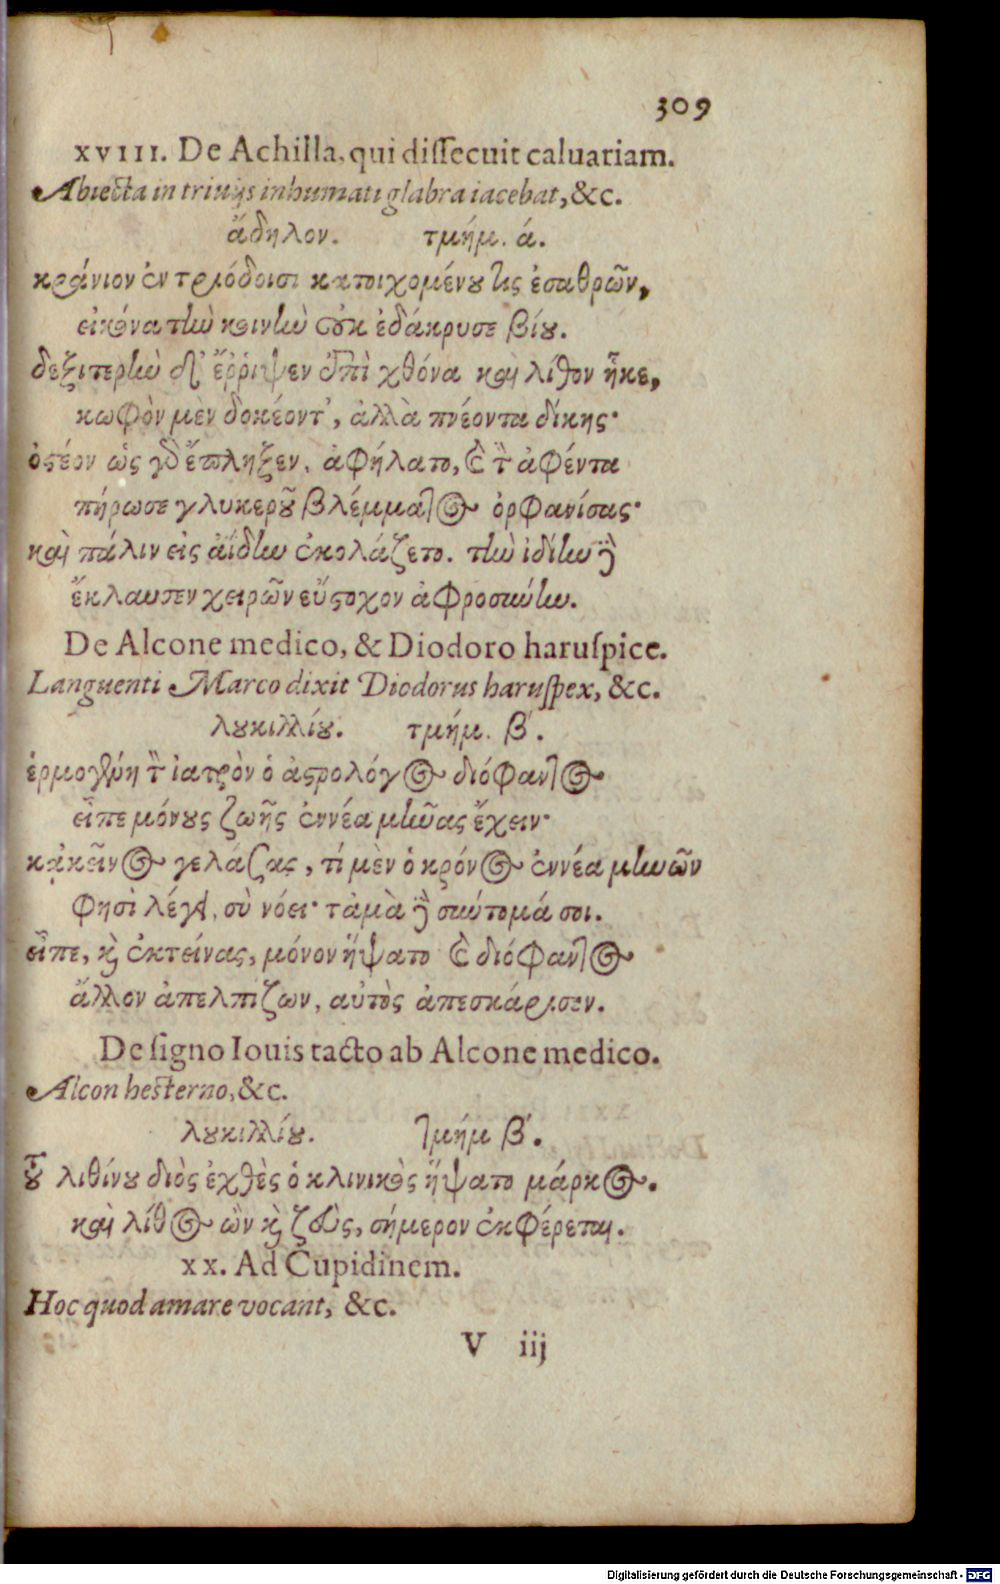 309
XVIII. De Achilla, qui dissecuit caluariam.
Abiecta in triuijs inhumati glabra iacebat, &c.
ἄδηλον. τμήμ. ά.
κράνιον ἐν τριόδοισι κατοιχομένου τὶς ἐσαθρῶν,
εἰκόνα τὴν κοινὴν οὐκ ἐδάκρυσε βίου.
δεξιτερὴν δ' ἔῤῥιψεν ἐπὶ χθόνα καὶ λίθον ἧκε,
κωφὸν μὲν δοκέοντ', ἀλλὰ πνέοντα δίκης·
ὀστέον ὡς γδ ἔπληξεν, ἀφήλατο, καὶ τ̀ ἀφέντα
πήρωσε γλυκεροῦ βλέμματος ὀρφανίσας·
καὶ πάλιν εἰς ἀΐδην ἐκολάζετο. τὴν ἰδίην δὲ
ἔκλαυσεν χειρῶν εὔστοχον ἀφροσύνην.
De Alcone medico, & Diodoro haruspice.
Languenti Marco dixit Diodorus haruspex, &c.
λουκιλλίου. τμήμ. β'.
ἑρμογένη τ̀ ἰατρὸν ὁ ἀστρολόγος διόφαντος
εἶπε μόνους ζωῆς ἐννέα μῆνας ἔχειν·
κᾀκεῖνος γελάσας, τί μὲν ὁ κρόνος ἐννέα μηνῶν
φησὶ λέγει, σὺ νόει· τἀμὰ δὲ σύντομά σοι.
εἶπε, καὶ ἐκτείνας, μόνον ἥψατο καὶ διόφαντος
ἄλλον ἀπελπίζων, αὐτὸς ἀπεσκάρισεν.
De signo Iouis tacto ab Alcone medico.
Alcon hesterno, &c.
λουκιλλίου. τμήμ β'.
τοῦ λιθίνου διὸς ἐχθὲς ὁ κλινικὸς ἥψατο μάρκος.
καὶ λίθος ὢν καὶ ζεὺς, σήμερον ἐκφέρεται.
XX. Ad Cupidinem.
Hoc quod amare vocant, &c.
V iij
Digitalisierung gefördert durch die Deutsche Forschungsgemeinschaft - DFG